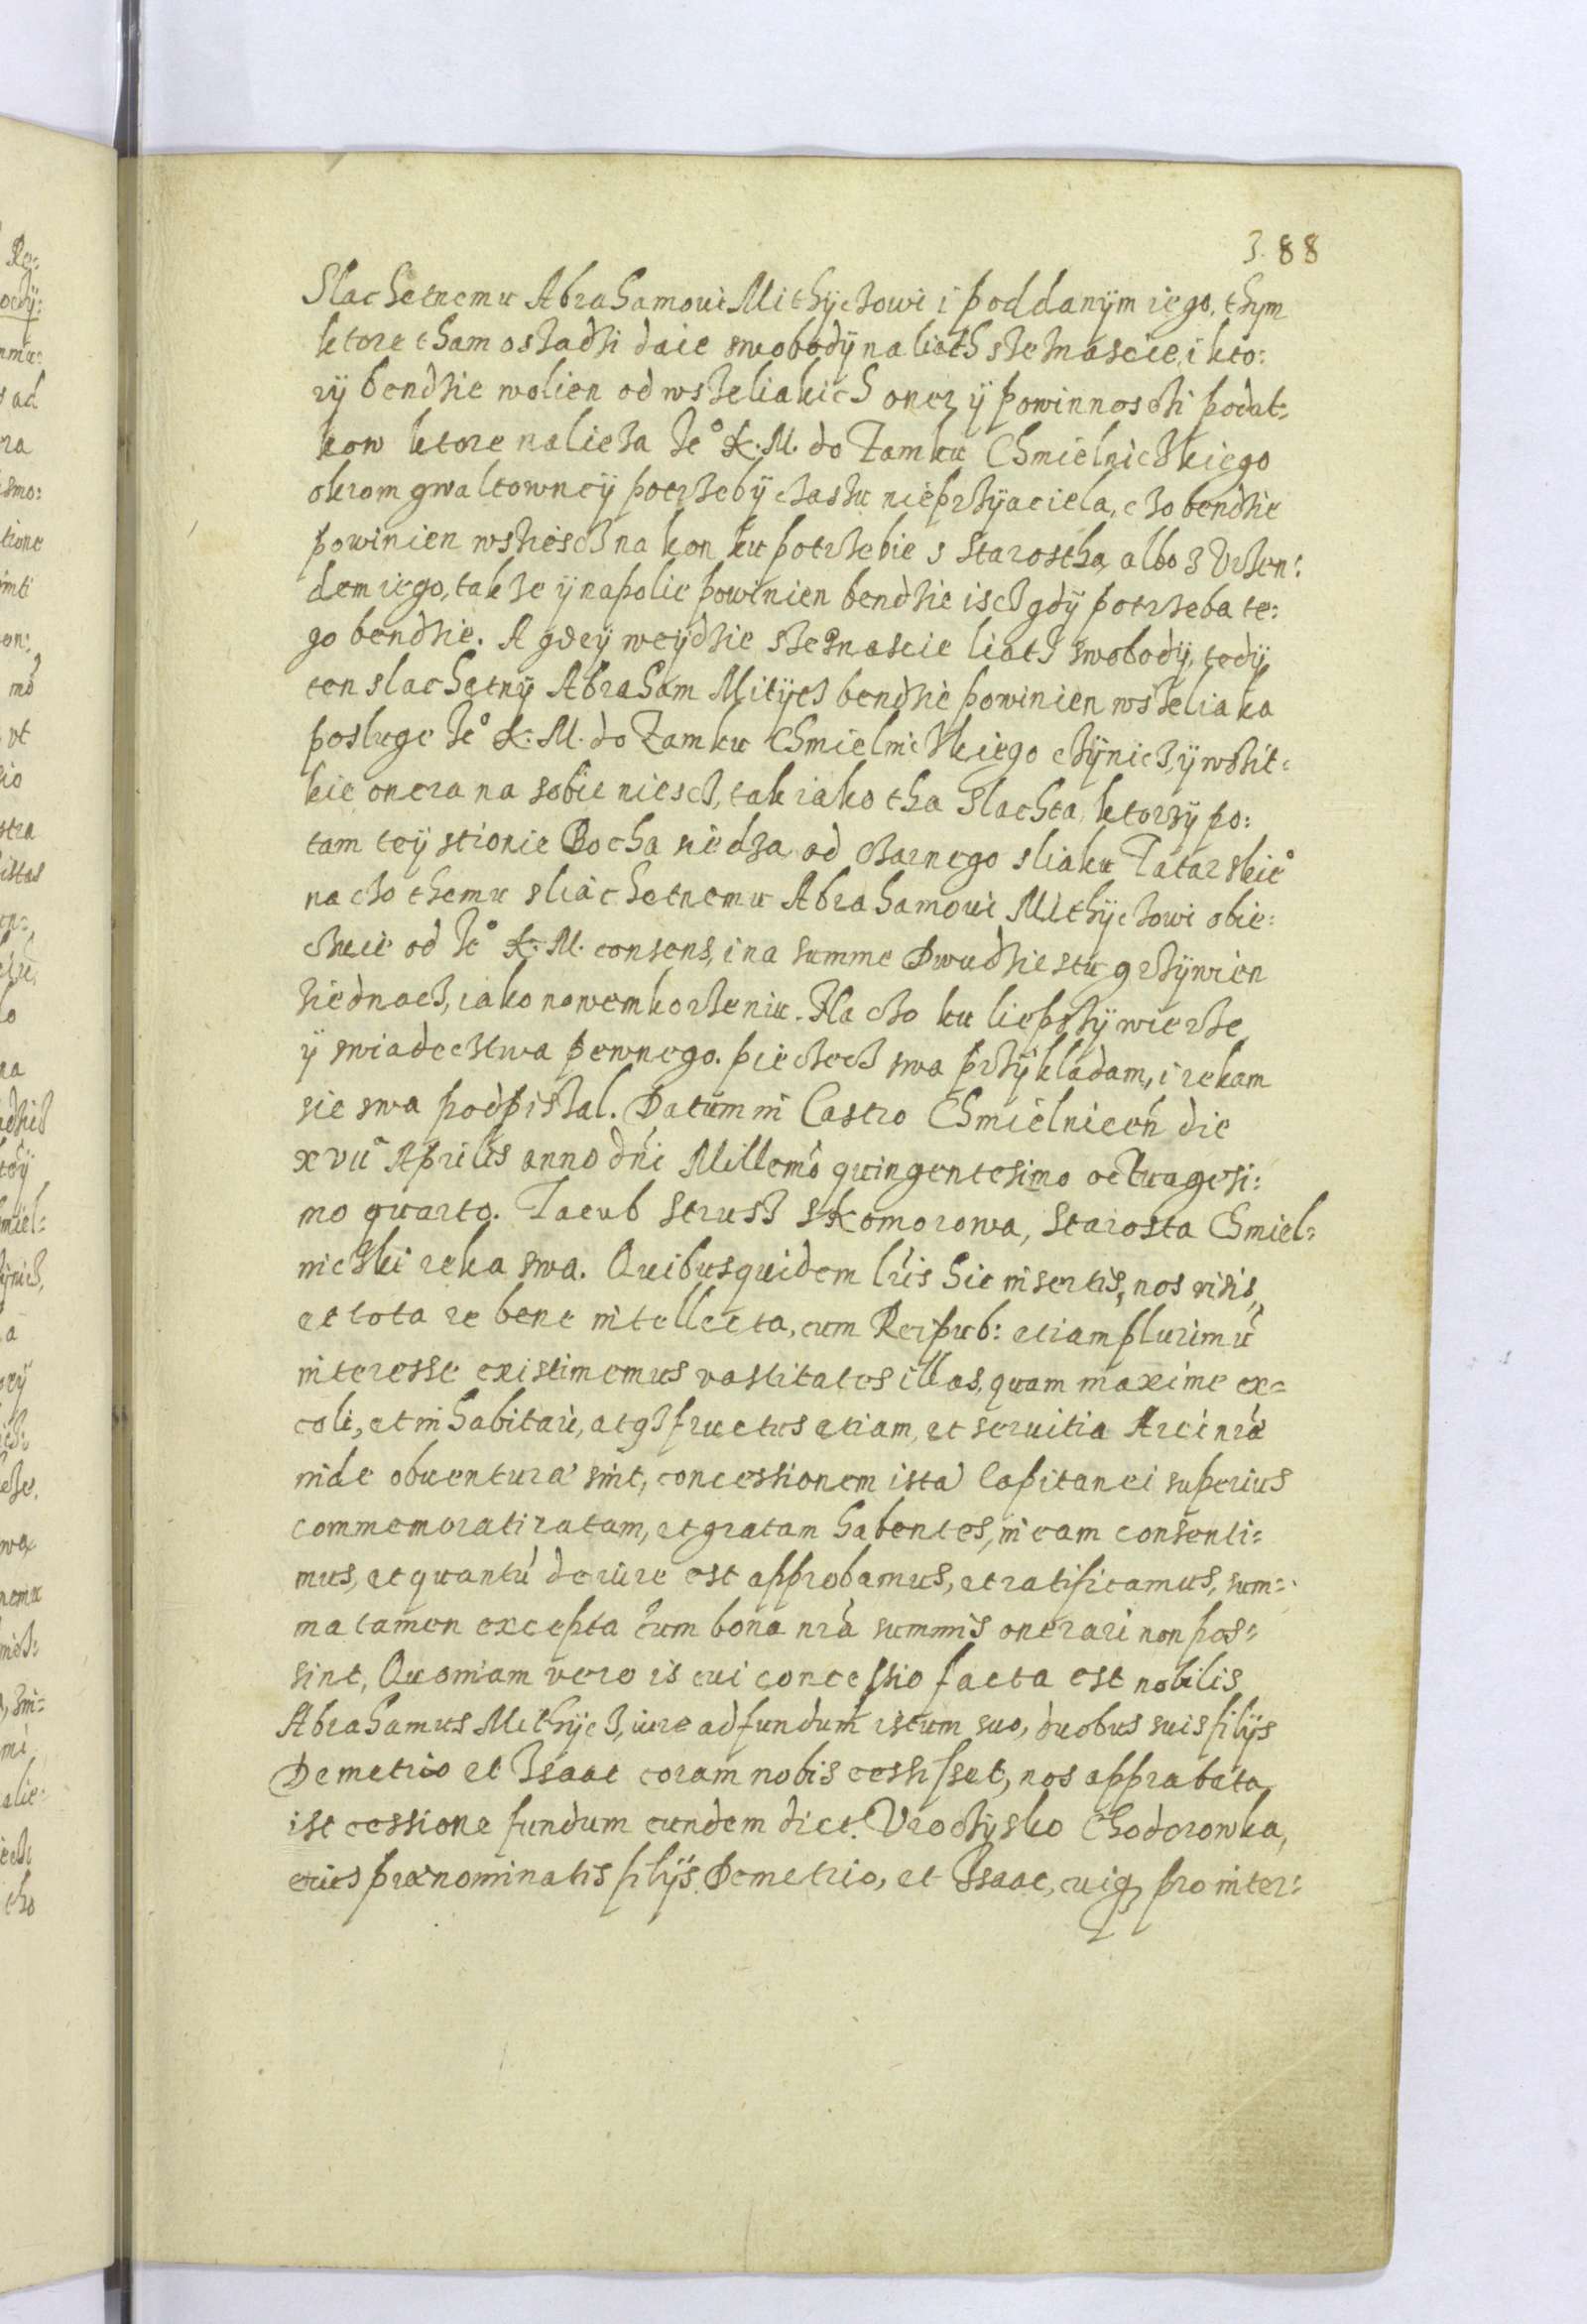 3.88
Slachetnemu Abrahamoui Mithyczowi i poddanÿm iego, thym
ktore tham osadzi daie swobodÿ na liath szesnascie, i kto:
rÿ bendzie wolien od wszeliakich oner ÿ powinnosczi podat:
kow ktore nalieza Je° K. M. do Zamku Chmielniczkiego
okrom gwaltowneÿ potrzebÿ czasu nieprzÿaciela, czo bendzie
powinien wsziescz na kon ku potrzebie s Starostha, albo z Vrzen:
dem iego, takze ÿ na polie powinien bendzie iscz gdÿ potrzeba te:
go bendzie. A gdeÿ weÿdzie szesnascie liath swobodÿ, tedÿ
ten slachetnÿ Abraham Mitÿcz bendzie powinien wszeliaka
posluge Je° K. M. do Zamku Chmielniczkiego czÿnicz, ÿ wszit:
kie onera na sobie niescz, tak iako tha Slachta, ktorzÿ po:
tam teÿ stronie Bocha siedza od czarnego sliaku Tatarskie°
na czo themu sliachetnemu Abrahamoui Mithÿczowi obie:
czuie od Je° K. M. consens, i na summe Dwudziestu grzÿwien
ziednacz, iako nowemkorzeniu. Na czo ku liepszÿ wierze
ÿ swiadectwa pewnego. pieczecz swa przÿkladam, i rekam
sie swa podpiszal. Datum in Castro Chmielnicen̄ die
xvii Aprilis anno dńi Millemo quingentesimo octuagesi:
mo quarto. Jacub Strusz s Komorowa, Starosta Chmiel:
niczki reka swa. Quibusquidem lris hic insertis, nos visis,
et tota re bene intellecta, cum Reipub: etiam plurimū
interesse existimemus vastitates illas, quam maxime ex:
coli, et inhabitari, atqз fructus etiam, et seruitia Arci nrã
inde obuentura sint, concessionem istã Capitanei superius
commemorati ratam, et gratam habentes, in eam consenti:
mus, et quantū de iure est approbamus, et ratificamus, sum:
ma tamen excepta cum bona nrã summis onerari non pos:
sint, Quoniam vero is cui concessio facta est nobilis
Abrahamus Mithÿcz, iure ad fundum istum suo, duobus suis filÿs
Demetrio et Isaac coram nobis cessisset, nos approbata
ist cessione fundum eundem dict. Vroczÿsko Chodorowka,
eius prænominatis filÿs Demetrio, et Isaac, cuiqз pro inter: